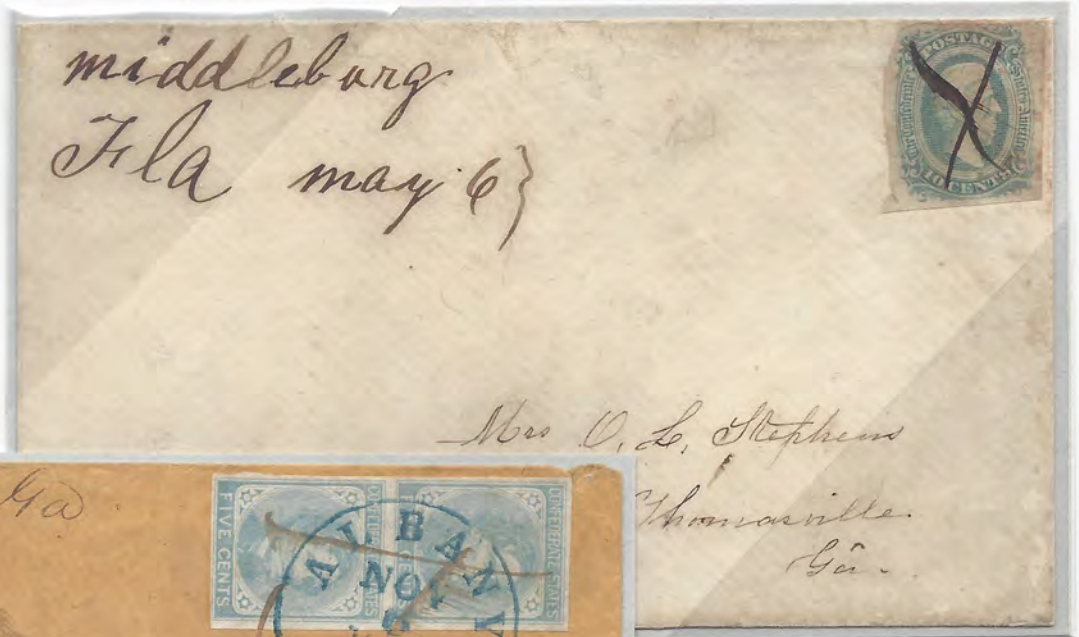 middleburg
Fla may 6}
POSTAGE
The Confederate States of America
10 CENTS
Mrs O. L. Stephens
Thomasville
Ga.
Ga
FIVE CENTS
CONFEDERATE STATES
ALBANY
NOV